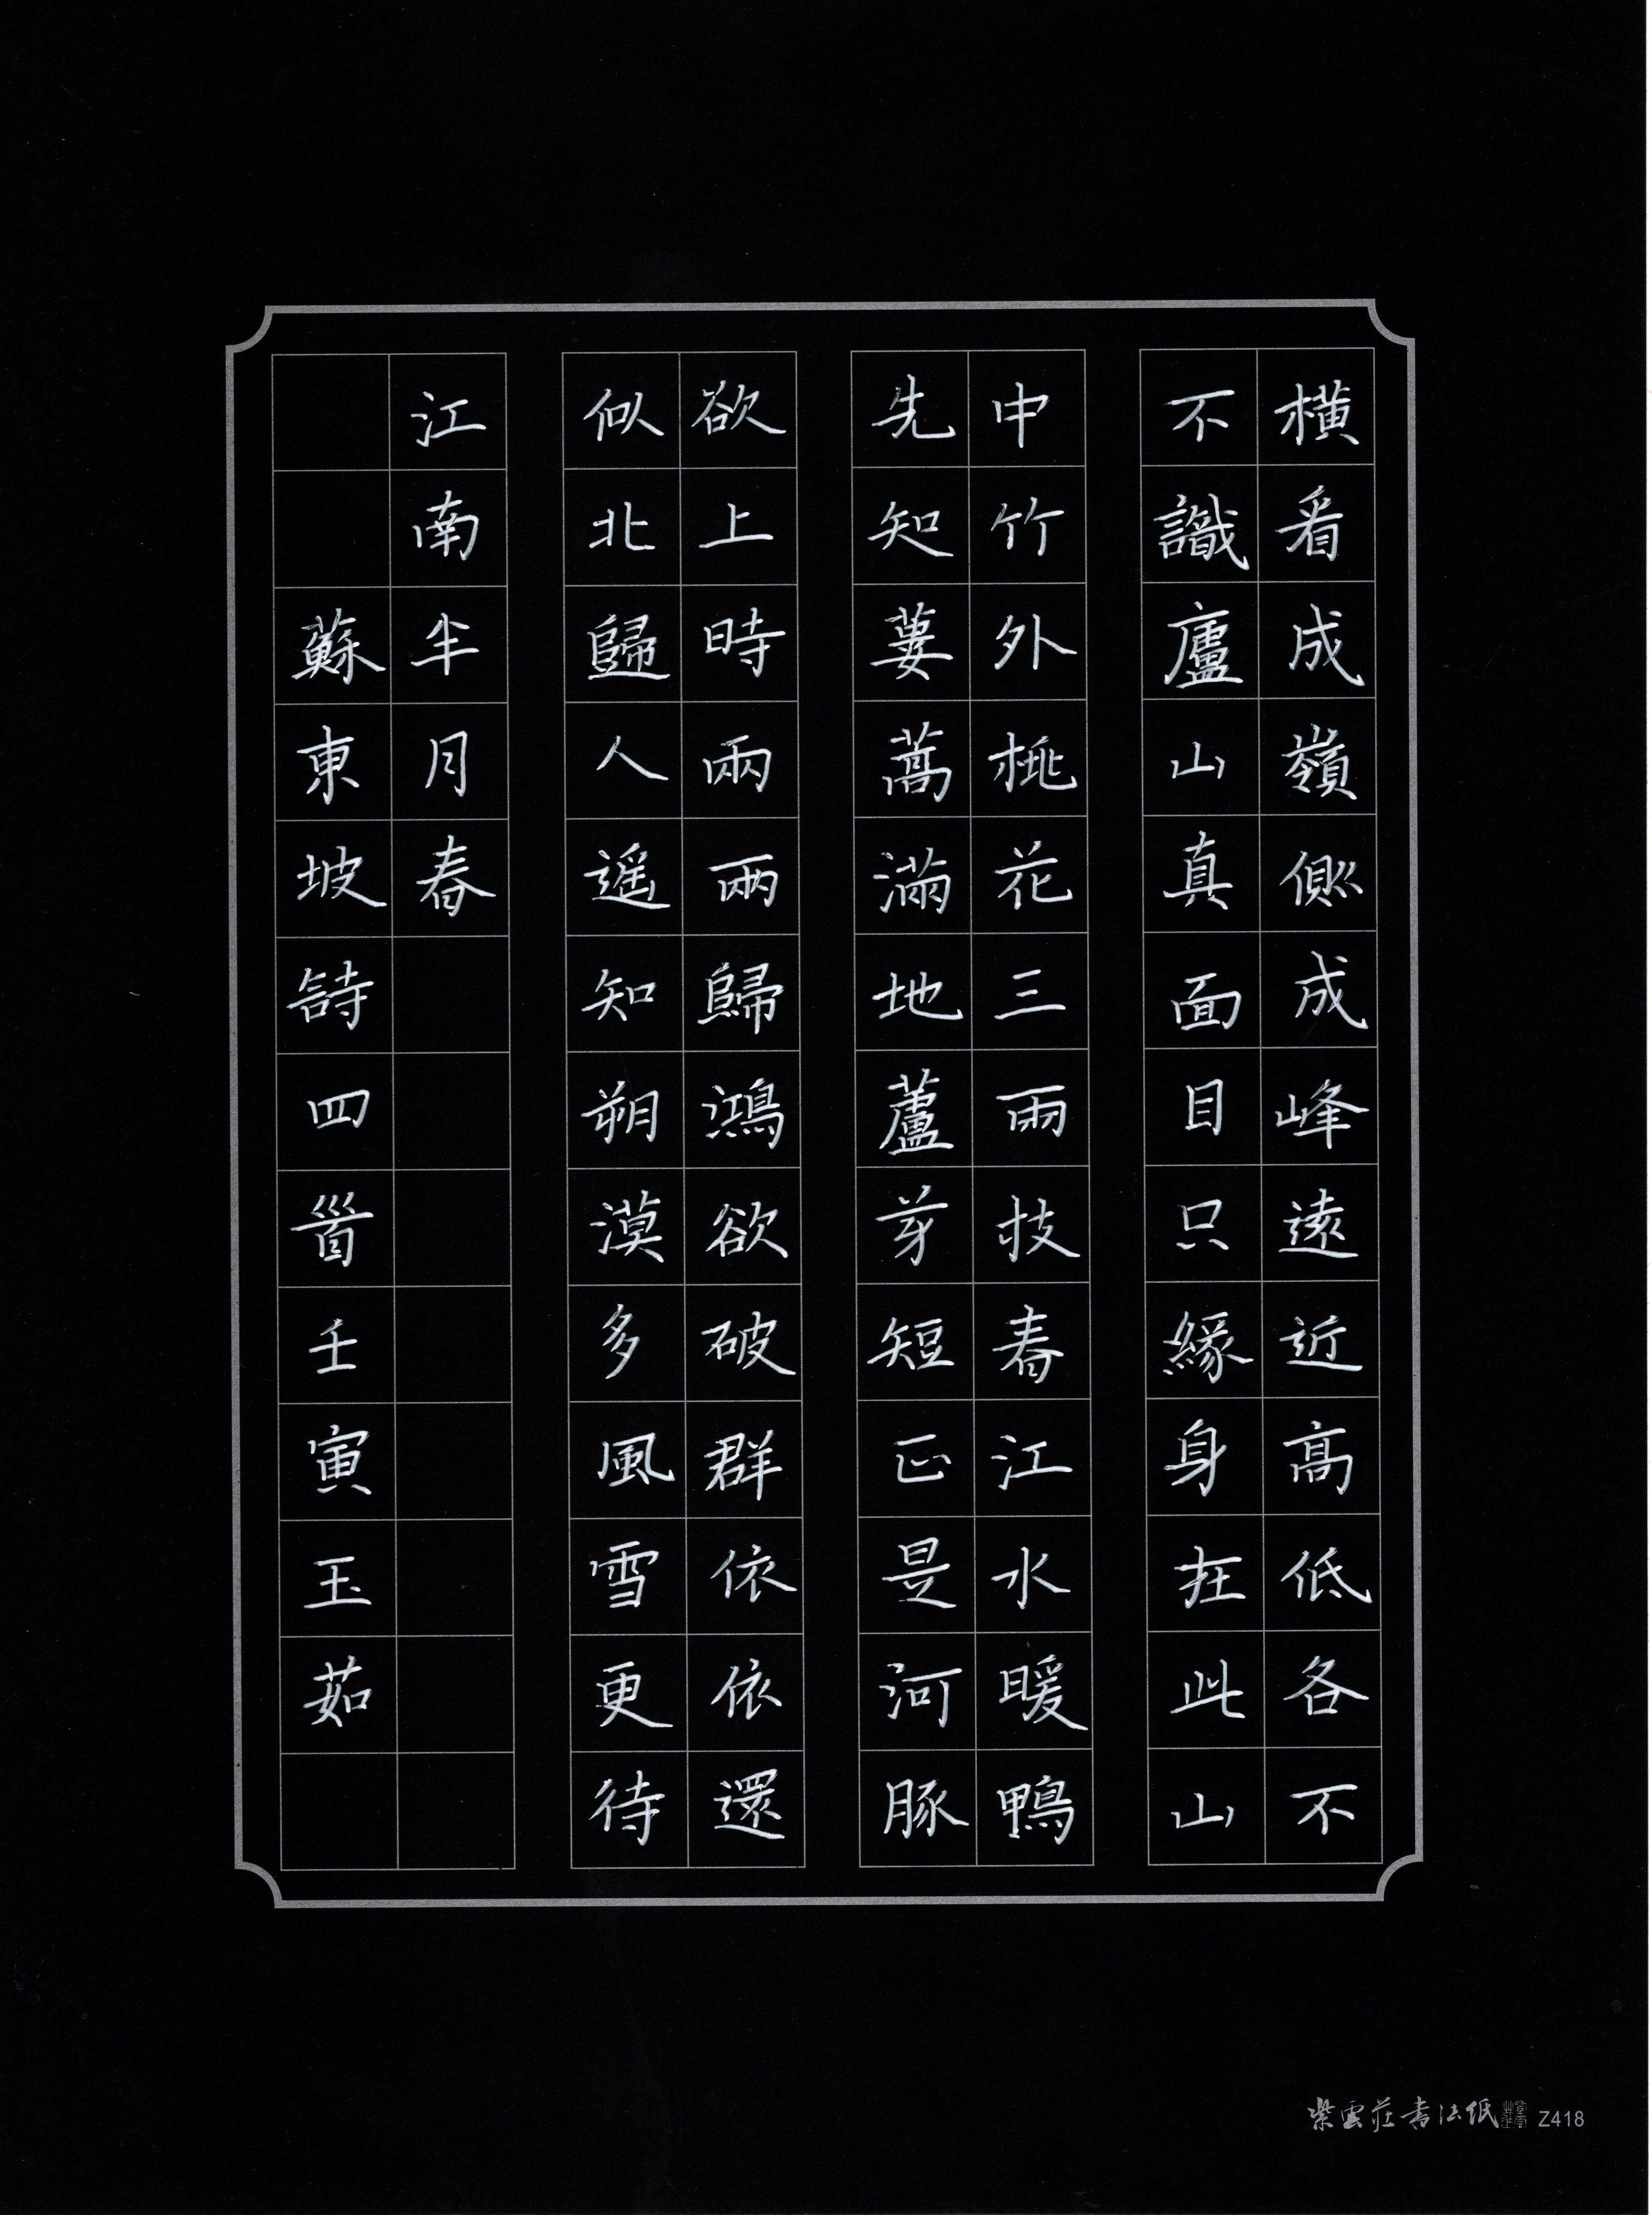 橫看成嶺側成峰遠近高低各不
不識廬山真面目只緣身在此山
中竹外桃花三兩枝春江水暖鴨
先知蔞蒿滿地蘆芽短正是河豚
欲上時兩兩歸鴻欲破群依依還
似北歸人遙知朔漠多風雪更待
江南半月春
蘇東坡詩四首壬寅玉茹
紫雲莊書法紙 Z418